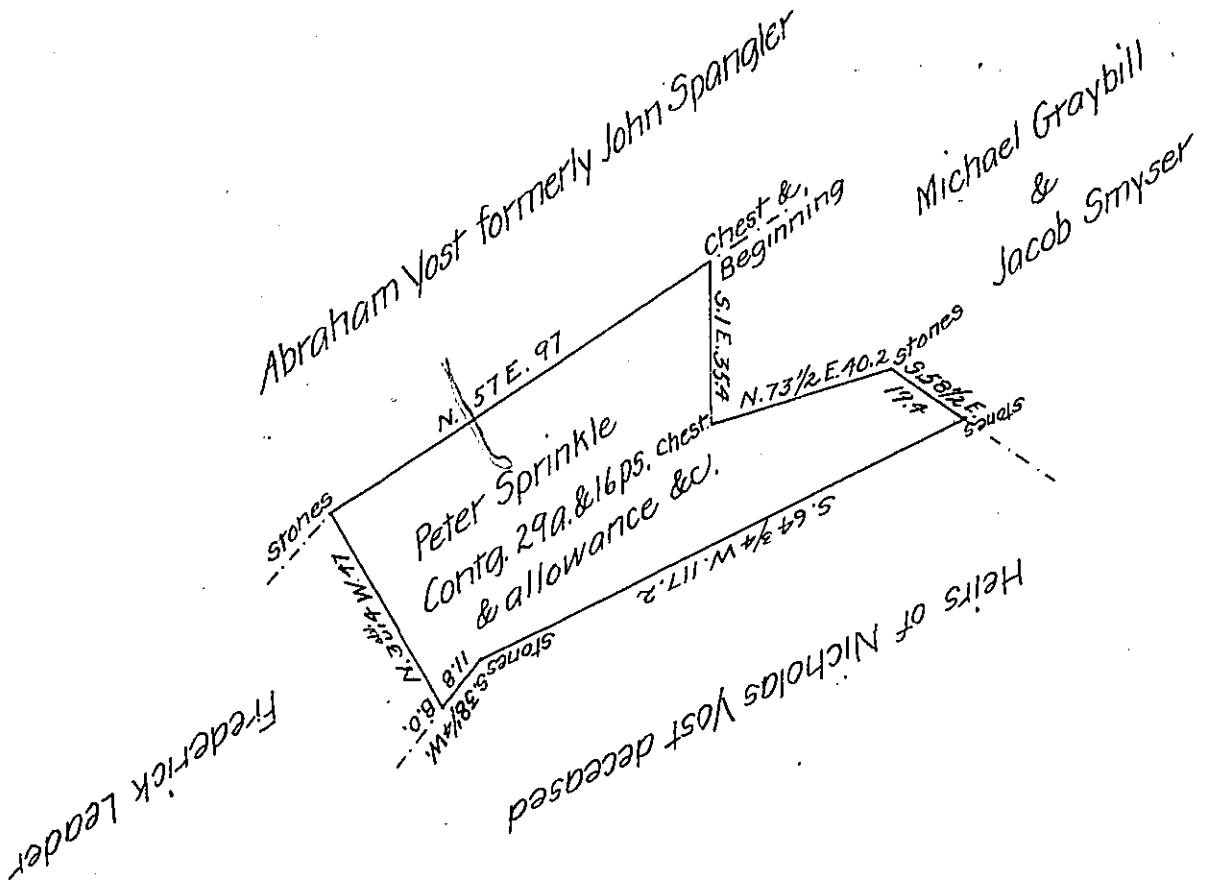 Abraham Yost formerly John Spangler
Michael Graybill
&
Jacob Smyser
Chest &
Beginning
S.1E.35.4
N.73½E.40.2
Stones
S.58½E.
19.4
Stones
N. 57 E. 97
Stones
Peter Sprinkle
Contg. 29a.&16ps.
& allowance &c.
Chest
S.64¾W.117.2
Stones
S.38¼W.
11.8
B.O.
W.47
Heirs of Nicholas Yost deceased
Frederick Leader